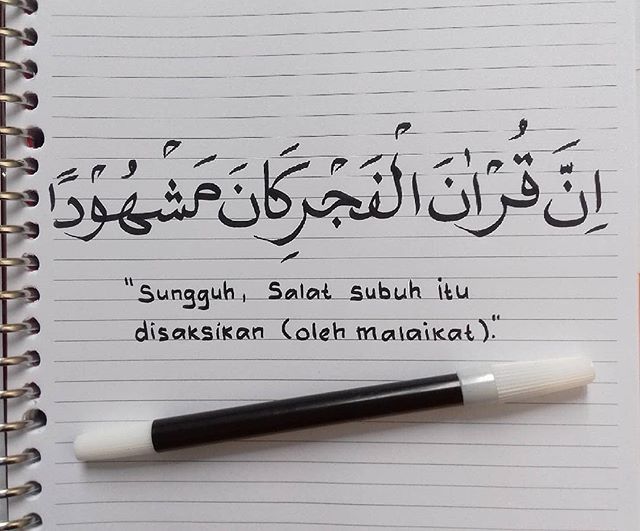 اِنَّ قُرْاٰنَ الْفَجْرِ كَانَ مَشْهُوْدًا
"Sungguh, Salat subuh itu
disaksikan (oleh malaikat)."